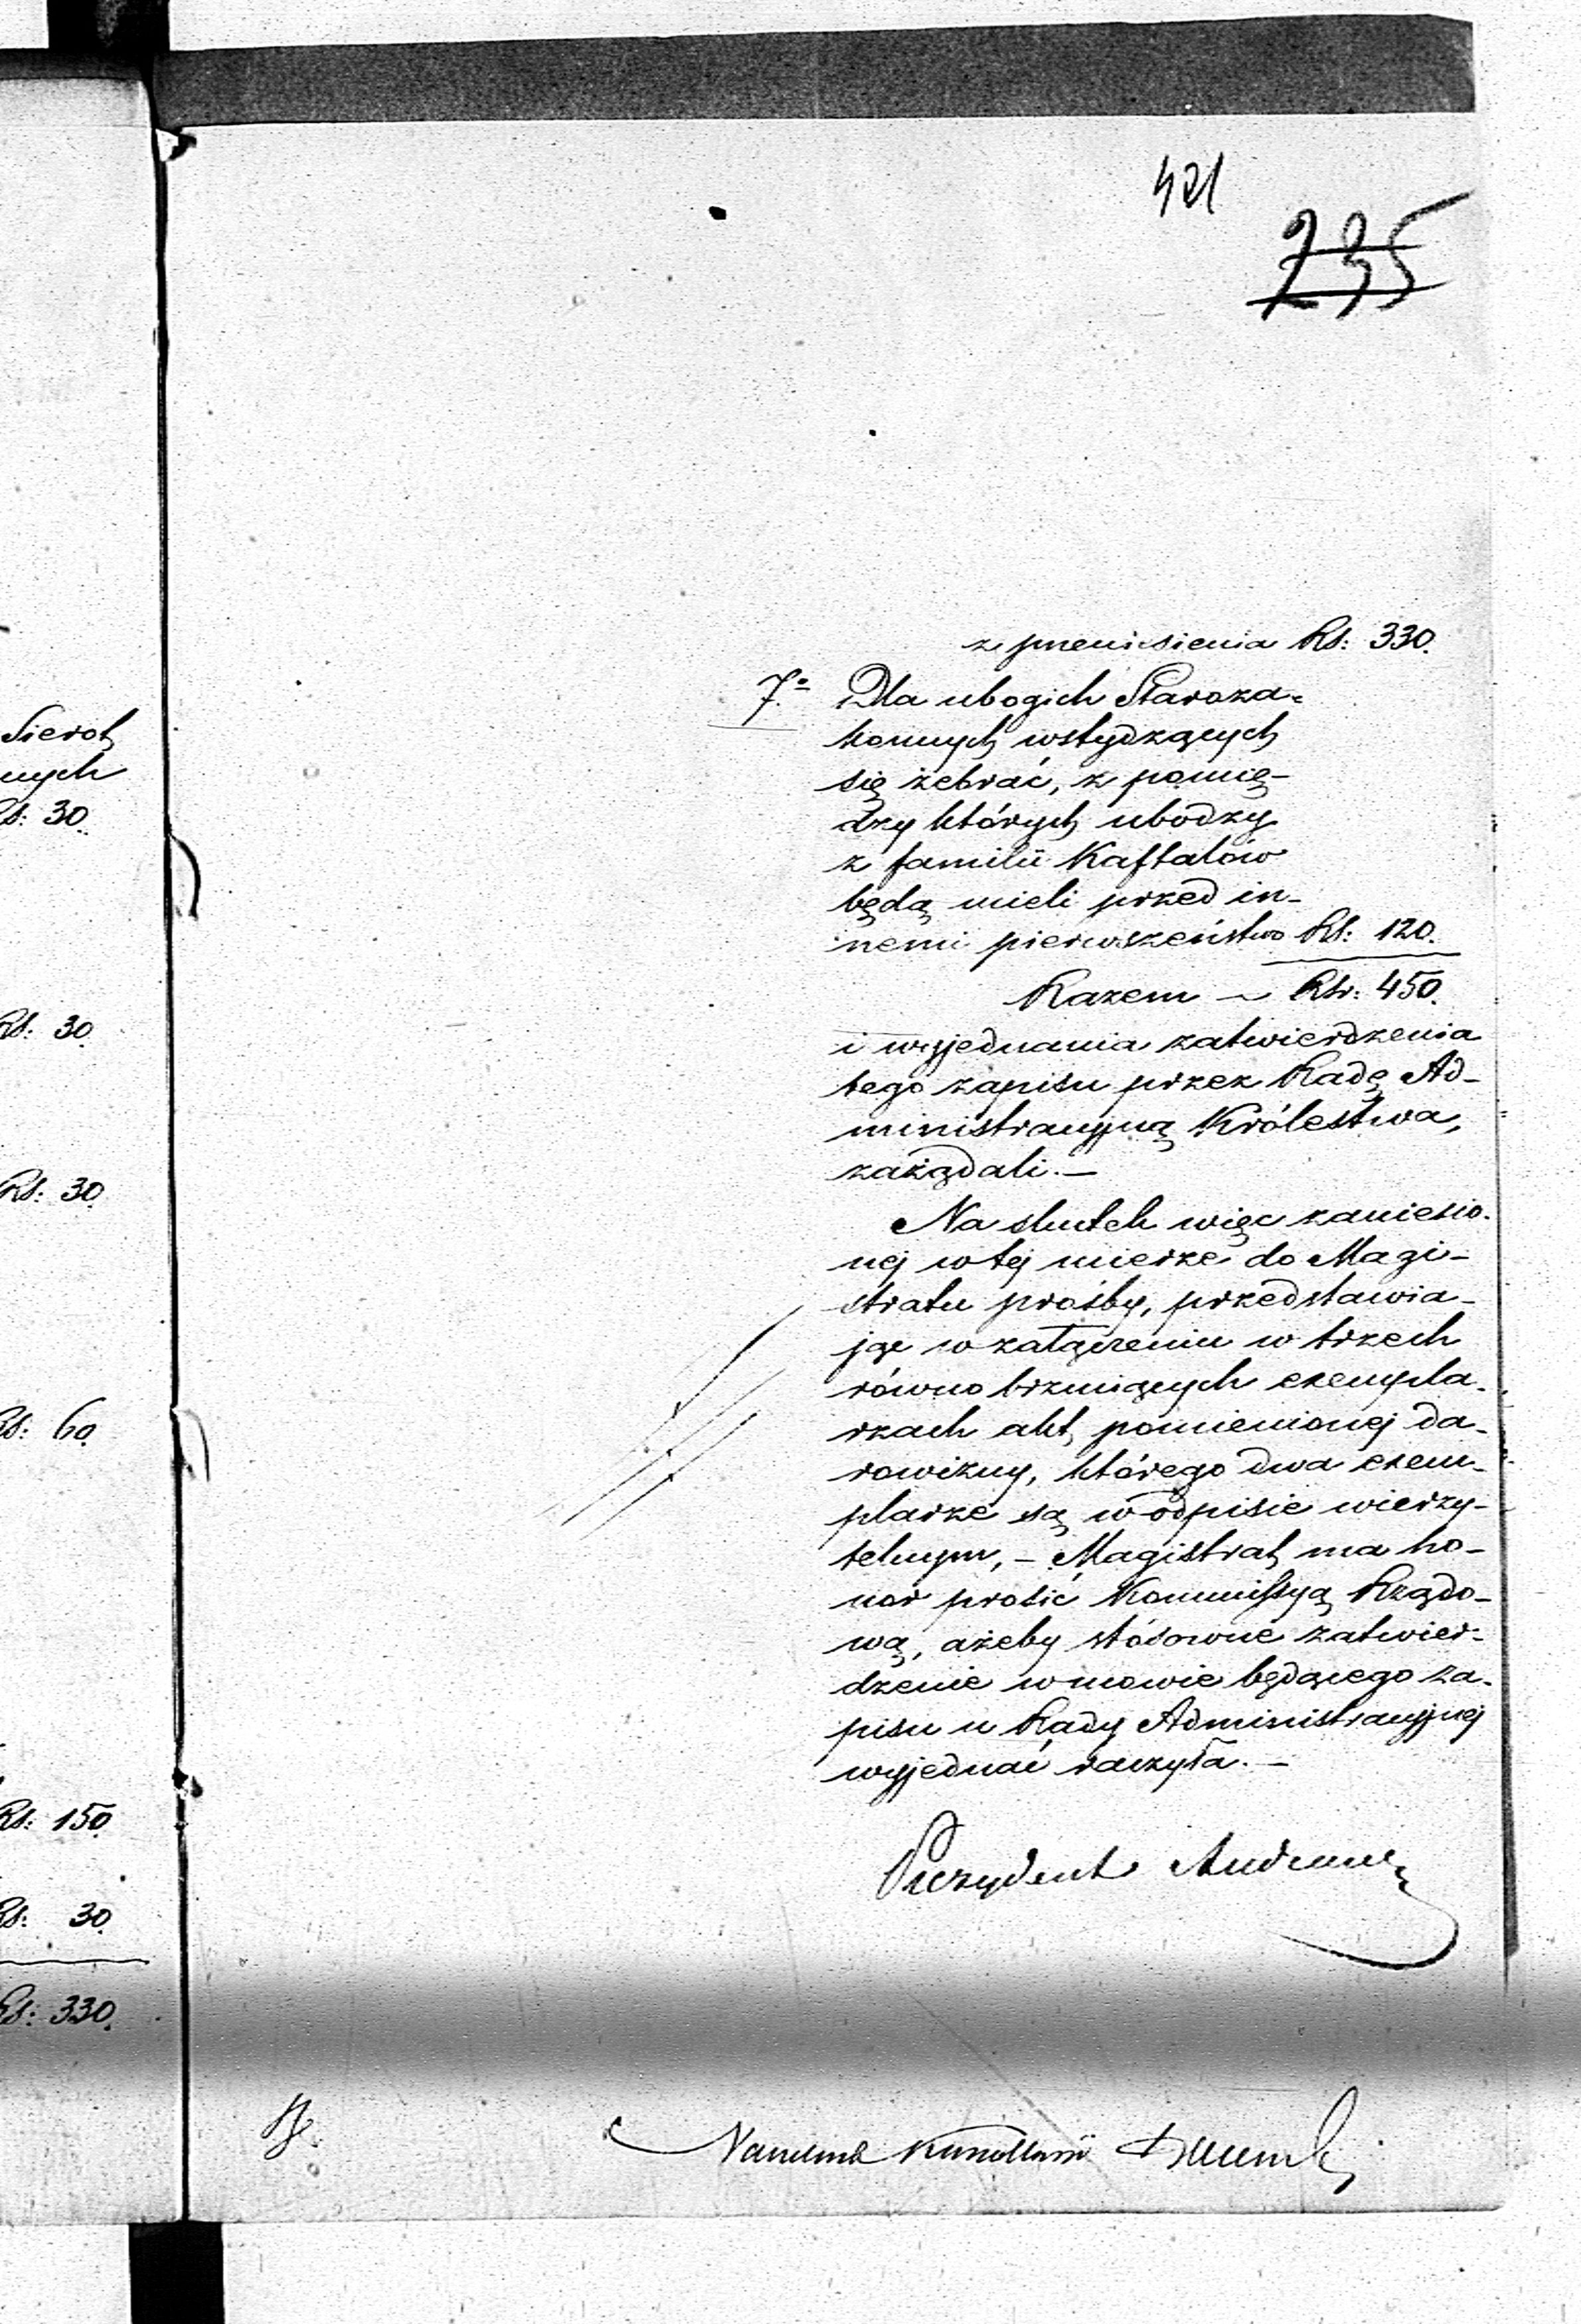 Sierot
nych
Rs: 30.
Rs: 30.
Rs: 30.
Rs: 60.
Rs: 150.
Rs: 30.
Rs: 330.
421
235
z przeniesienia Rs: 330.
7.° Dla ubogich Staroza=
konnych wstydzących
się żebrać, z pomię-
dzy których ubodzy
z familii Kaftalów
będą mieli przed in-
nemi pierwszeństwo Rs: 120.
Razem ~ Rsr: 450.
i wyjednania zatwierdzenia
tego zapisu przez Radę Ad-
ministracyjną Królestwa,
zażądali.—
Na skutek więc zaniesio-
nej w tej mierze do Magi-
stratu prośby, przedstawia-
jąc w załączeniu w trzech
równo brzmiących exempla-
rzach akt pomienionej da-
rowizny, którego dwa exem-
plarze są w odpisie wierzy-
telnym, – Magistrat ma ho-
nor prosić Kommissyą Rządo-
wą, ażeby stósowne zatwier-
dzenie w mowie będącego za-
pisu u Rady Administracyjnej
wyjednać raczyła.—
Prezydent
Naczelnik Kancellarii